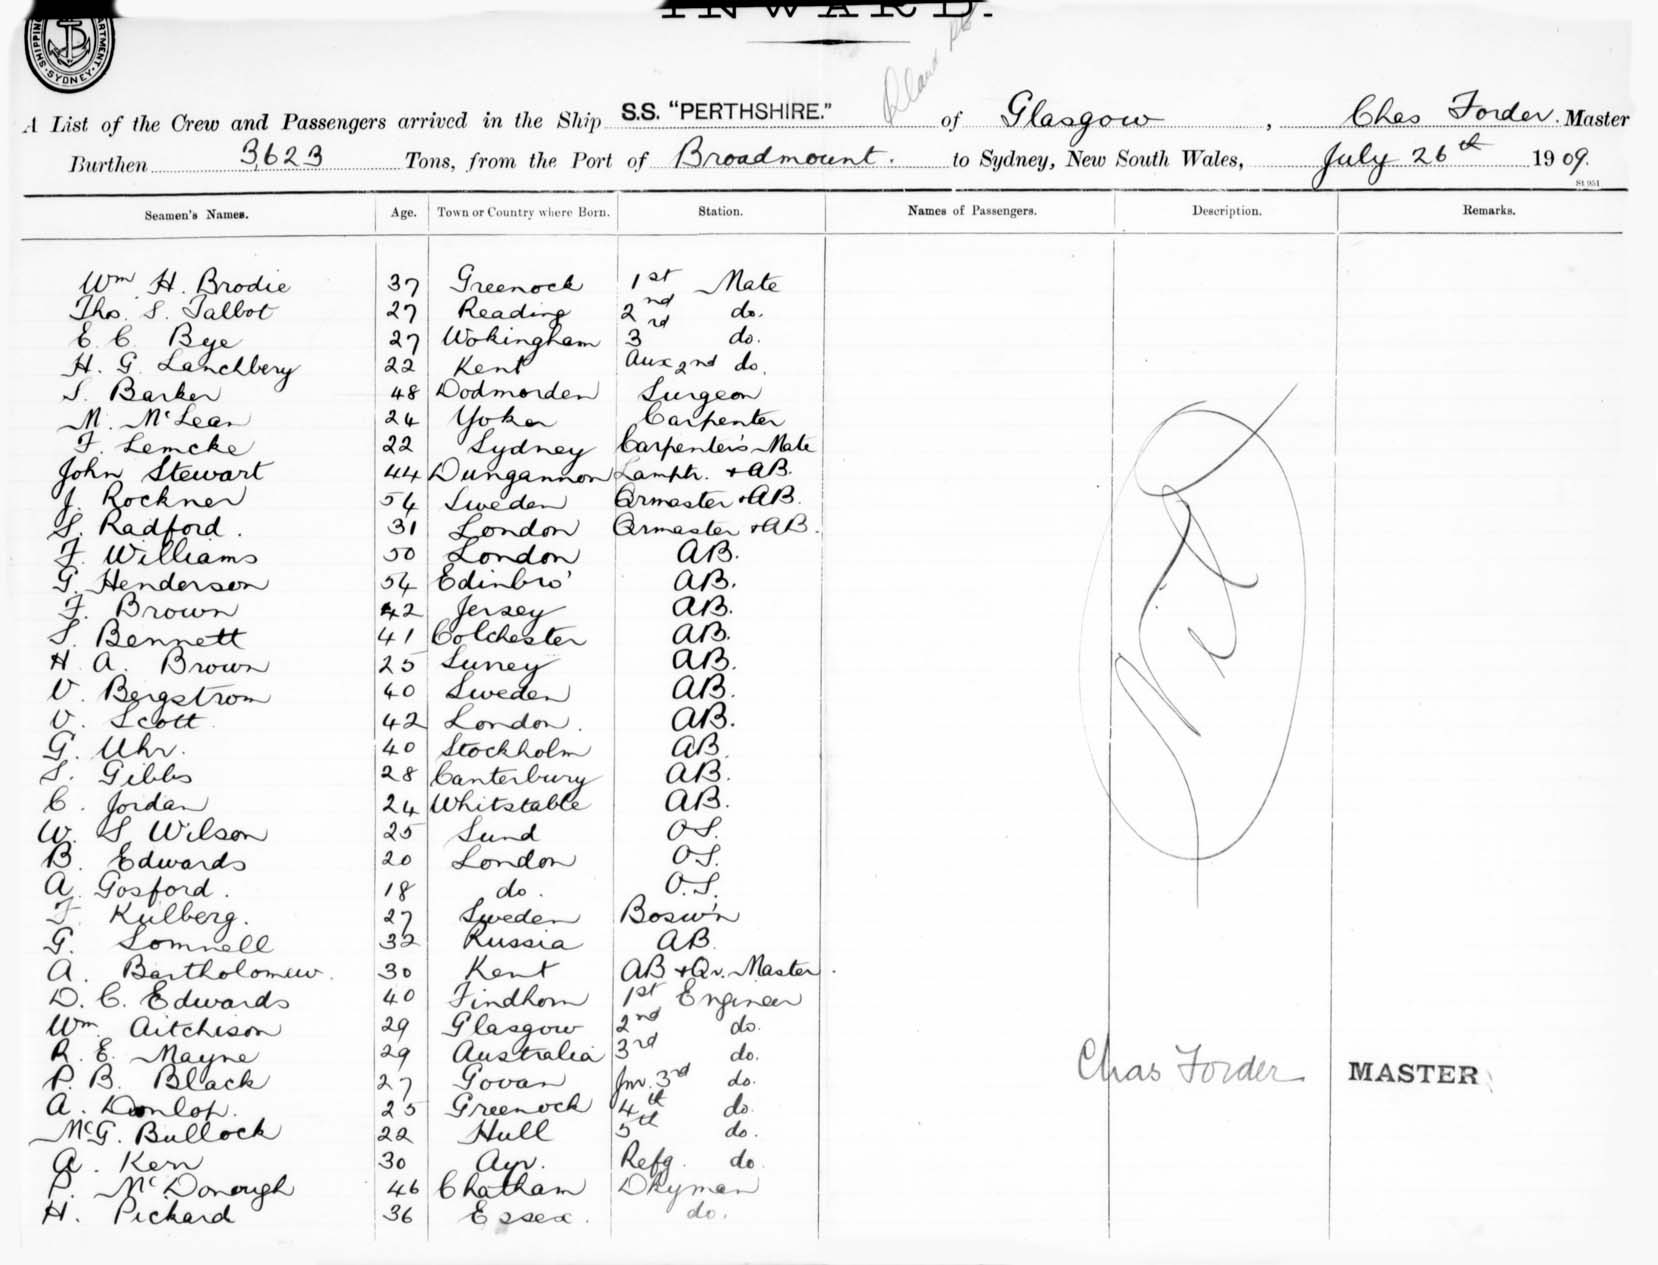 INWARD.
SHIPPING DEPARTMENT SYDNEY
A List of the Crew and Passengers arrived in the Ship S.S. "PERTHSHIRE." of Glasgow, Chas Forder. Master
Burthen 3,623 Tons, from the Port of Broadmount. to Sydney, New South Wales, July 26th 1909.
St 951
Seamen's Names. Age. Town or Country where Born. Station. Names of Passengers. Description. Remarks.
Wm. H. Brodie 37 Greenock 1st Mate
Thos. S. Talbot 27 Reading 2nd do.
E. C. Bye 27 Wokingham 3rd do.
H. G. Lanchbery 22 Kent Aux 2nd do.
S. Barker 48 Dodmorden Surgeon
M. McLean 24 Yoker Carpenter
F. Lemcke 22 Sydney Carpenter's Mate
John Stewart 44 Dungannon Lamptr. + AB.
J. Rockner 54 Sweden Qrmaster + AB.
S. Radford. 31 London Qrmaster + AB.
F. Williams 50 London AB.
G. Henderson 54 Edinbro' AB.
F. Brown 42 Jersey AB.
S. Bennett 41 Colchester AB.
H. A. Brown 25 Surrey AB.
V. Bergstrom 40 Sweden AB.
V. Scott 42 London. AB.
G. Uhr. 40 Stockholm AB.
S. Gibbs 28 Canterbury AB.
C. Jordan 24 Whitstable AB.
W. S. Wilson 25 Sund OS.
B. Edwards 20 London OS.
A. Gosford. 18 do. O.S.
F. Kulberg. 27 Sweden Bosw'n
G. Somnell 32 Russia AB.
A. Bartholomew. 30 Kent AB + Qr. Master.
D. C. Edwards 40 Findhorn 1st Engineer
Wm. Aitchison 29 Glasgow 2nd do.
R. E. Mayne 29 Australia 3rd do.
P. B. Black 27 Govan Jnr. 3rd do.
A. Dunlop. 25 Greenock 4th do.
McG. Bullock 22 Hull 5th do.
A. Kerr 30 Ayr. Refg. do.
P. McDonough 46 Chatham Dkyman
H. Pickard 36 Essex. do.
Nil
Chas Forder MASTER